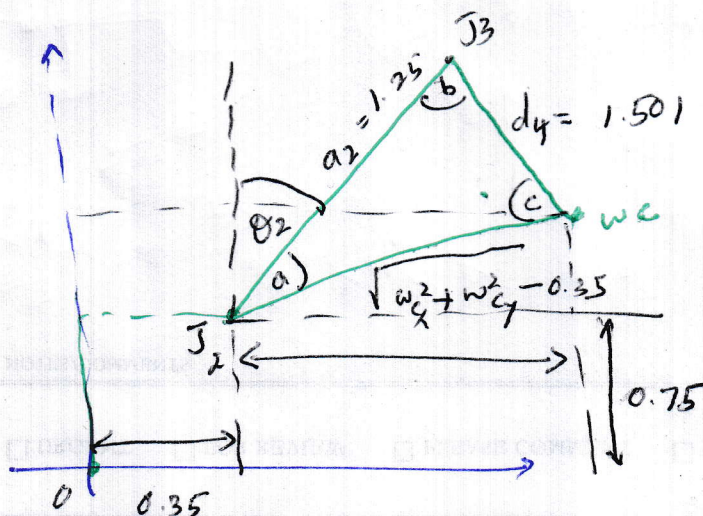 J3
a2 = 1.25
b
d4 = 1.501
θ2
c
wc
a
√wcx² + wcy² - 0.35
J2
0.75
0
0.35